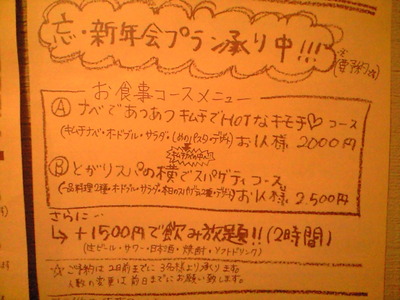 忘・新年会プラン承り中!!!
※(要予約)
お食事コースメニュー
Ⓐ ナベであつあつキムチでHOTなキモチ♡コース
(キムチナベ・オードブル・サラダ・〆のパスタ・デザート) お1人様 2000円
Ⓑ とがリスパの横でスパゲティコース
(一品料理2種・オードブル・サラダ・パスタ2種・デザート) お1人様 2,500円
さらに…
↳ +1500円で飲み放題!!(2時間)
(生ビール・サワー・日本酒・焼酎・ソフトドリンク)
☆ご予約は2日前までに3名様より承ります。
人数の変更は前日までにお願い致します。